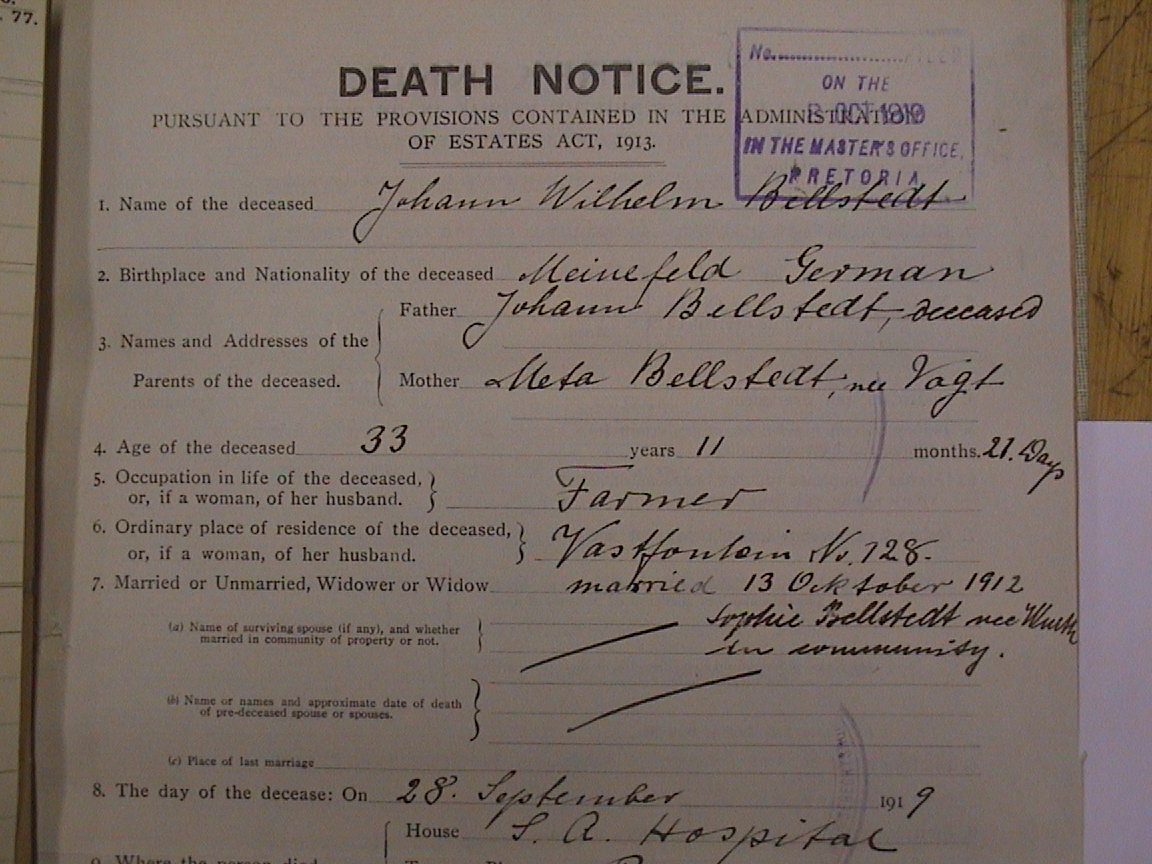 77.
No.
DEATH NOTICE.
ON THE
OCT 1919
PURSUANT TO THE PROVISIONS CONTAINED IN THE ADMINISTRATION
OF ESTATES ACT, 1913.
IN THE MASTER'S OFFICE,
PRETORIA
1. Name of the deceased Johann Wilhelm Bellstedt
2. Birthplace and Nationality of the deceased Meinefeld German
Father Johann Bellstedt, deceased
3. Names and Addresses of the
Parents of the deceased.
Mother Meta Bellstedt, nee Vagt
4. Age of the deceased 33 years 11 months. 21. Days
5. Occupation in life of the deceased,
or, if a woman, of her husband.
Farmer
6. Ordinary place of residence of the deceased,
or, if a woman, of her husband.
Vastfontein No. 728.
7. Married or Unmarried, Widower or Widow married 13 Oktober 1912
(a) Name of surviving spouse (if any), and whether
married in community of property or not.
Sophie Bellstedt nee
in community.
(b) Name or names and approximate date of death
of pre-deceased spouse or spouses.
(c) Place of last marriage
8. The day of the decease: On 28. September 1919
House S. A. Hospital
9. Where the person died